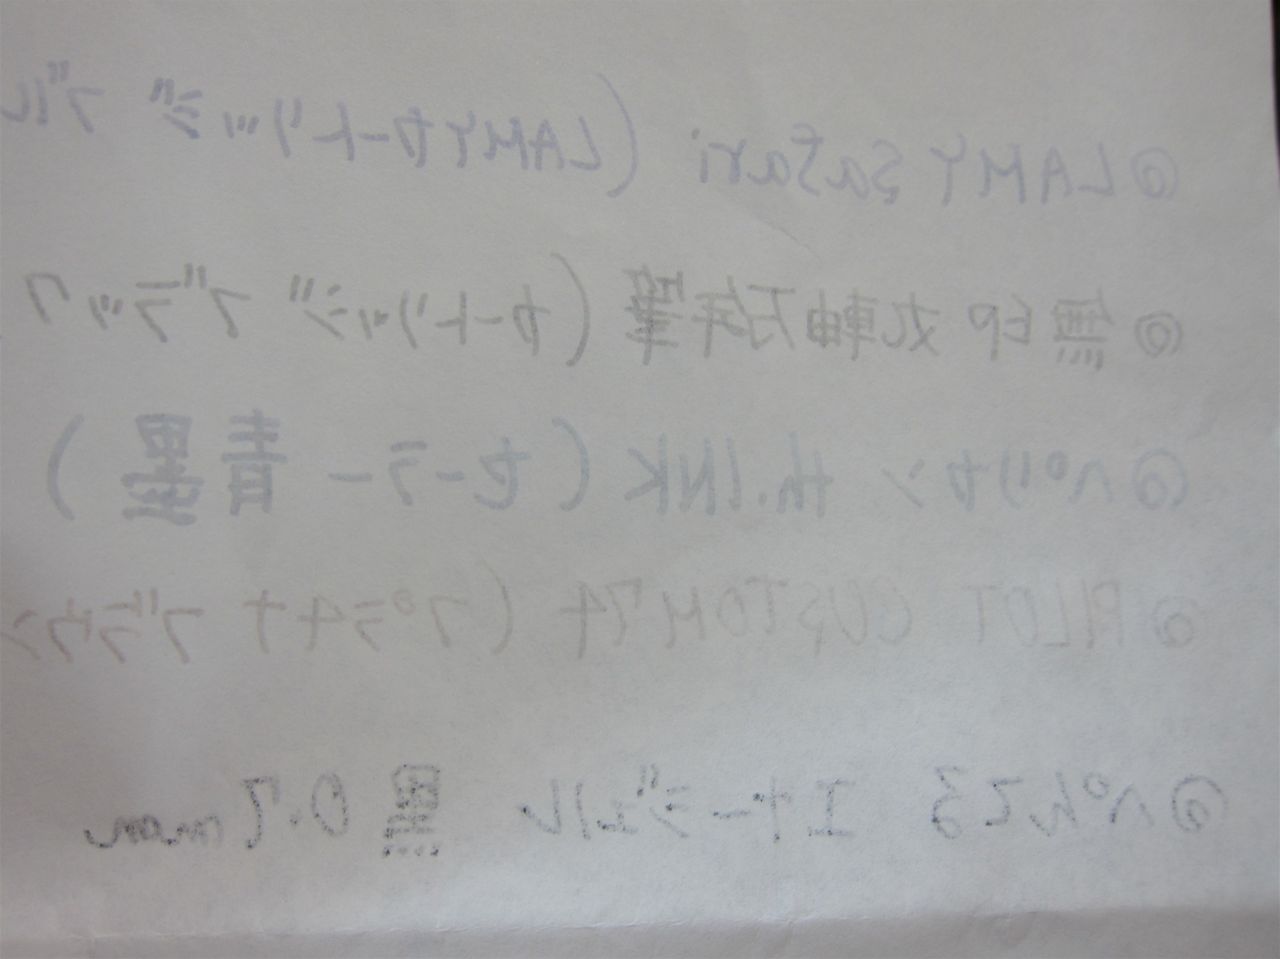 ◎LAMY safari (LAMYカートリッジ ブル
◎無印 丸軸万年筆 (カートリッジ ブラック
◎ペリカン th.INK (セーラー 青墨)
◎PILOT CUSTOM74 (プラチナ ブラウン
◎ぺんてる エナージェル 黒 0.7mm